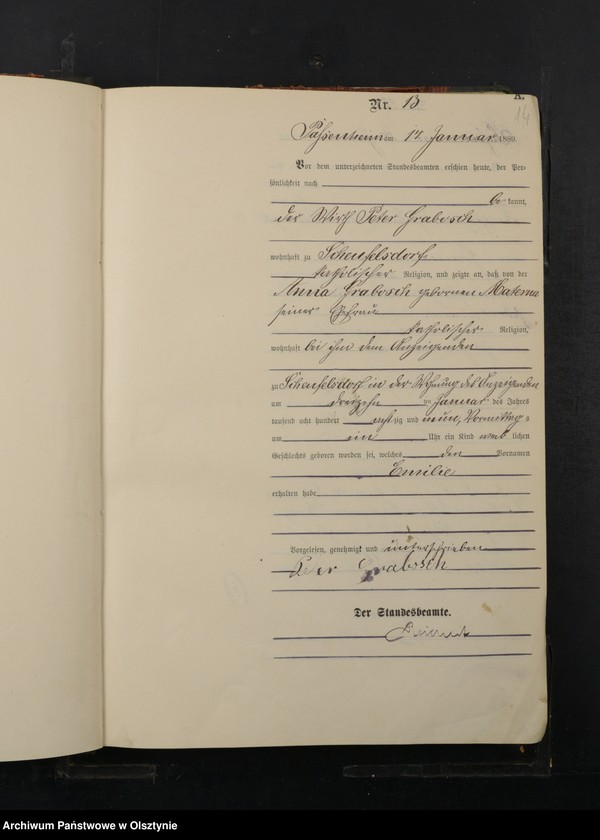 Nr. 13
A.
14
Passenheim am 17 Januar 1889.
Vor dem unterzeichneten Standesbeamten erschien heute, der Per-
sönlichkeit nach
be kannt,
der Wirth Peter Grabosch
wohnhaft zu Scheufelsdorf
katholischer Religion, und zeigte an, daß von der
Anna Grabosch gebornen Materna
seiner Ehefrau
katholischer Religion,
wohnhaft bei ihm dem Anzeigenden
zu Scheufelsdorf in der Wohnung des Anzeigenden
am dreizehn ten Januar des Jahres
tausend acht hundert acht zig und neun, Vormittag s
um ein Uhr ein Kind weib lichen
Geschlechts geboren worden sei, welches den Vornamen
Emilie
erhalten habe
Vorgelesen, genehmigt und unterschrieben
Peter Grabosch
Der Standesbeamte.
Archiwum Państwowe w Olsztynie